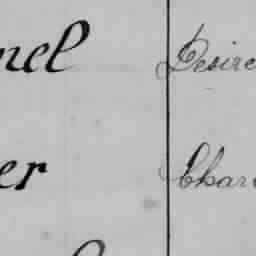 nel Desire
er Char